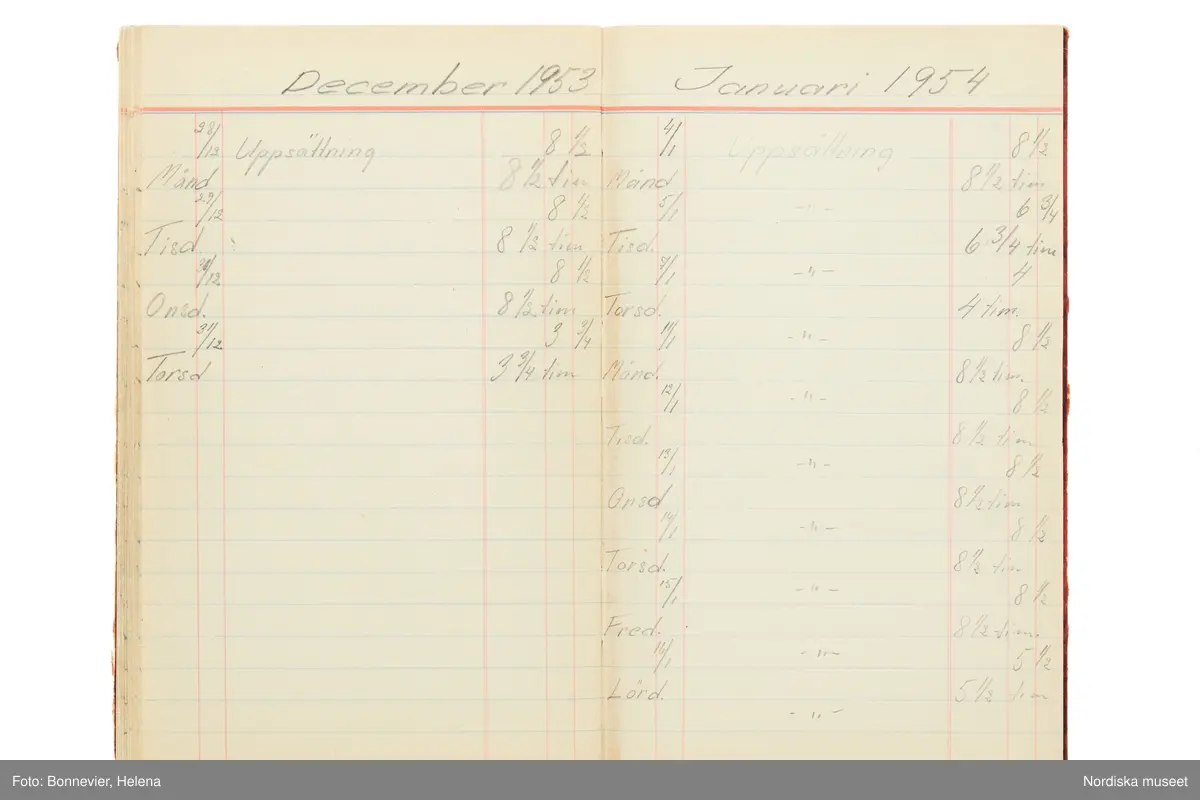 December 1953
28/12 Uppsättning 8 1/2
Månd 8 1/2 tim
29/12 8 1/2
Tisd. 8 1/2 tim
30/12 8 1/2
Onsd. 8 1/2 tim
31/12 3 3/4
Torsd 3 3/4 tim
Januari 1954
4/1 Uppsättning 8 1/2
Månd 8 1/2 tim
5/1 -"- 6 3/4
Tisd. 6 3/4 tim
7/1 -"- 4
Torsd. 4 tim.
11/1 -"- 8 1/2
Månd. 8 1/2 tim.
12/1 -"- 8 1/2
Tisd. 8 1/2 tim
13/1 -"- 8 1/2
Onsd 8 1/2 tim
14/1 -"- 8 1/2
Torsd. 8 1/2 tim
15/1 -"- 8 1/2
Fred. 8 1/2 tim.
16/1 -"- 5 1/2
Lörd. 5 1/2 tim
-"-
Foto: Bonnevier, Helena
Nordiska museet